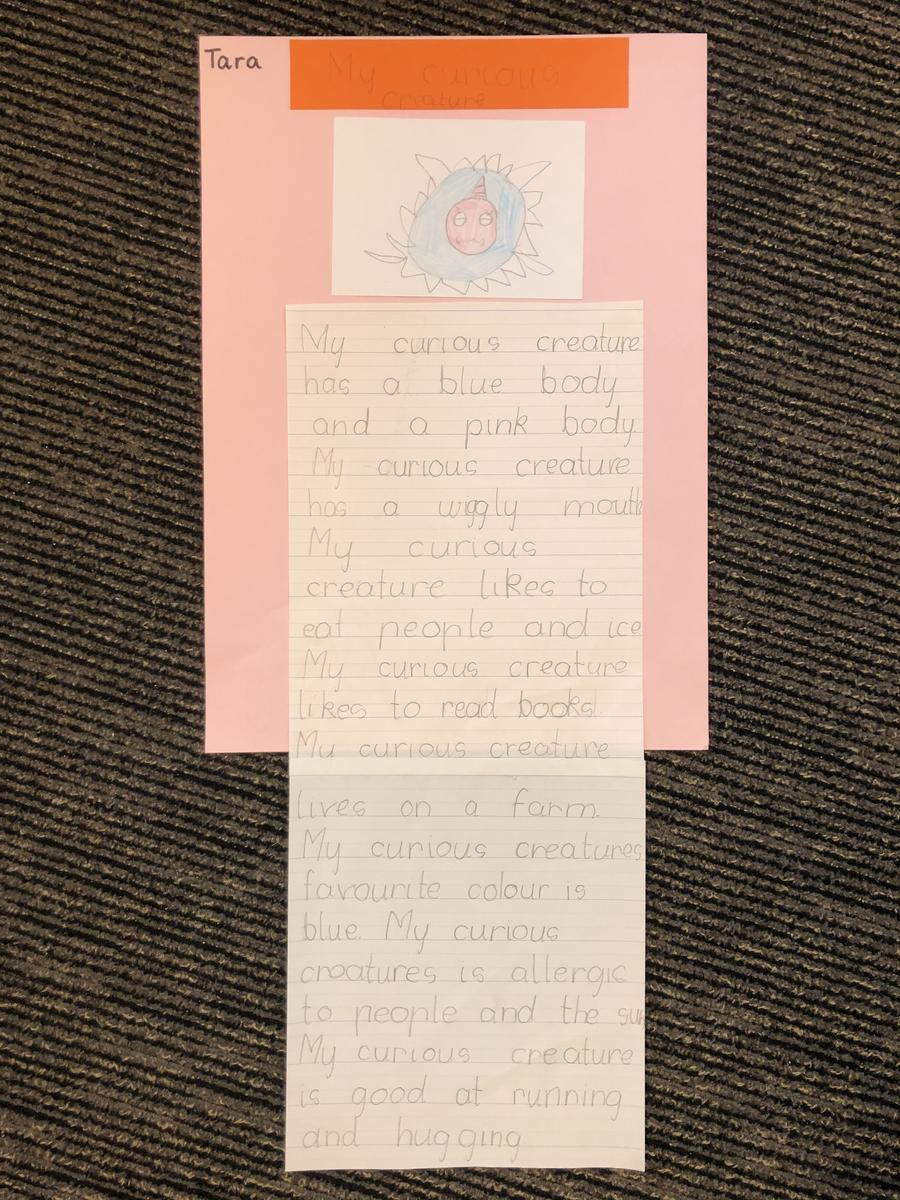 Tara
My curious
Creature
My curious creature
has a blue body
and a pink body
My curious creature
has a wiggly mouth
My curious
creature likes to
eat people and ice
My curious creature
likes to read books.
My curious creature
lives on a farm.
My curious creatures
favourite colour is
blue. My curious
croatures is allergic
to people and the sun
My curious creature
is good at running
and hugging